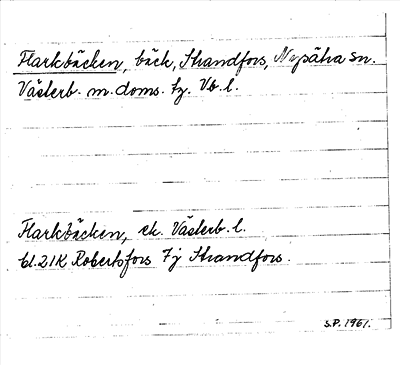 Flarkbäcken, bäck, Strandfors, Nysätra sn.
Västerb. m. doms. fg. Vb. l.
Flarkbäcken, ek. Västerb. l.
bl. 21K Robertsfors 7j Strandfors.
S.P. 1961.